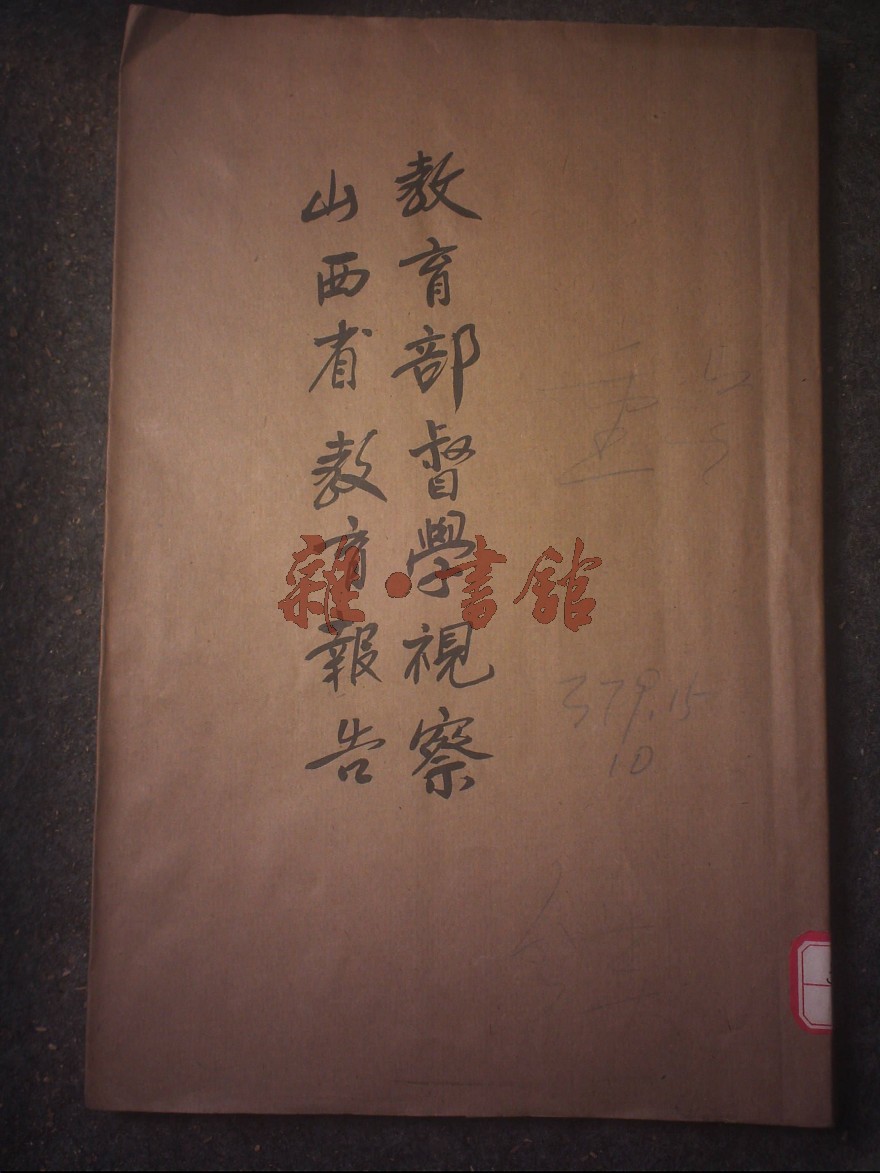 教育部督學視察
山西省教育報告
雜·書館
379.15
10